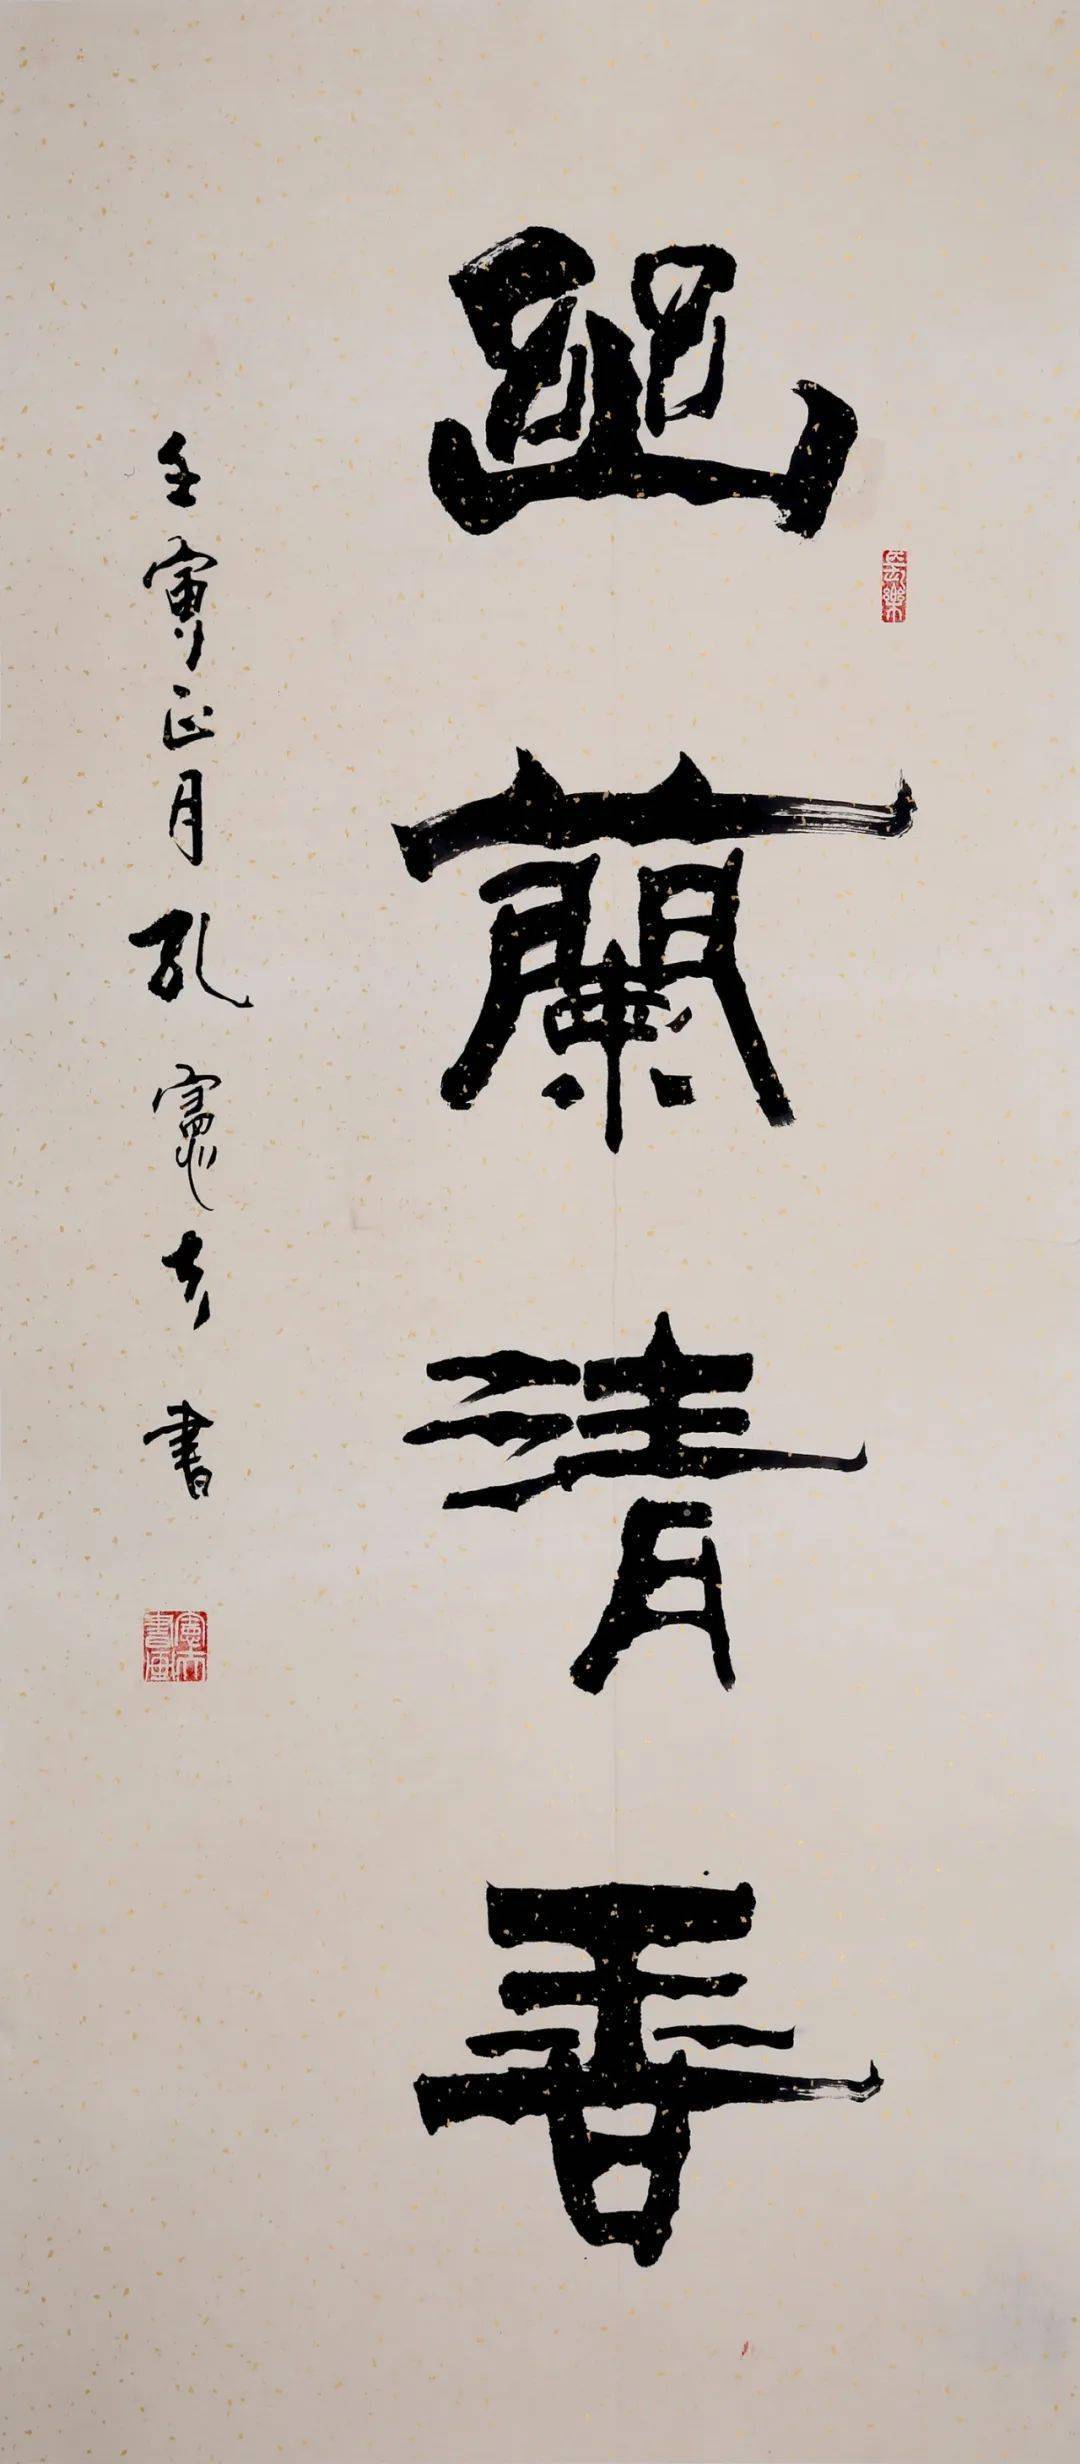 幽蘭清香
壬寅正月孔憲書